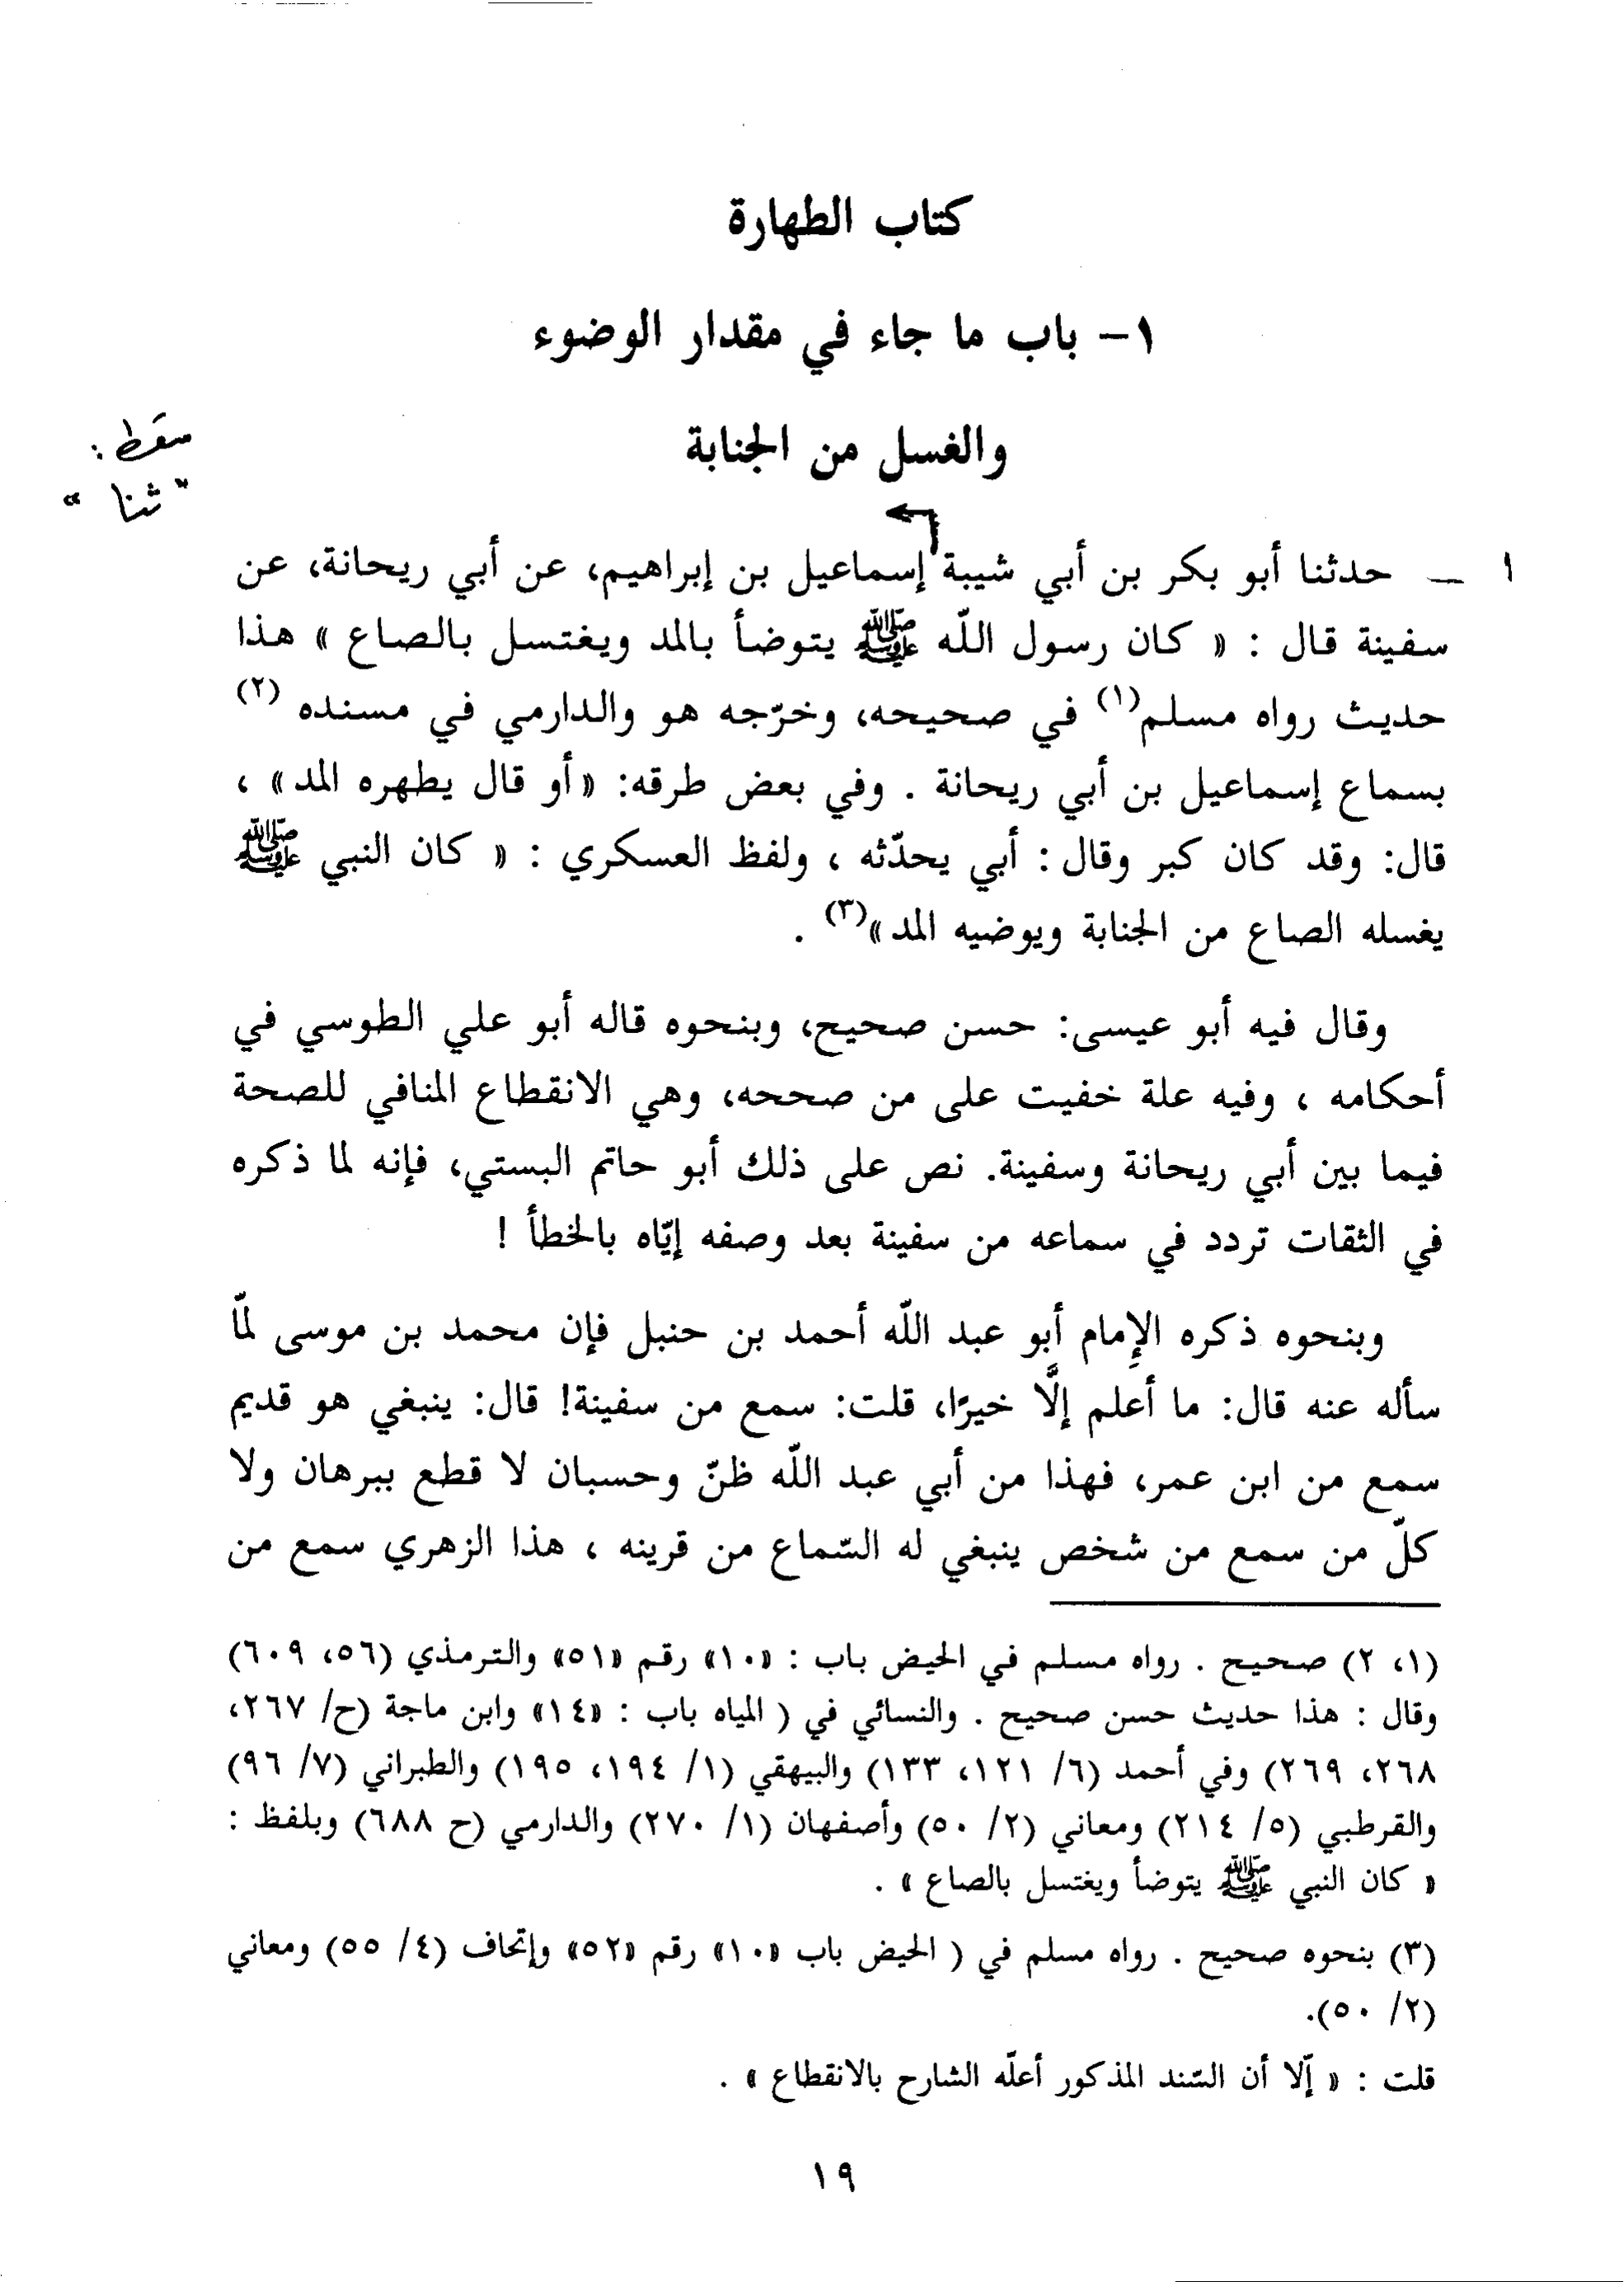 كتاب الطهارة
١- باب ما جاء في مقدار الوضوء
والغسل من الجنابة
سقط :
" ثنا "
١ — حدثنا أبو بكر بن أبي شيبة إسماعيل بن إبراهيم، عن أبي ريحانة، عن
سفينة قال : « كان رسول اللّه ﷺ يتوضأ بالمد ويغتسل بالصاع » هذا
حديث رواه مسلم(١) في صحيحه، وخرّجه هو والدارمي في مسنده (٢)
بسماع إسماعيل بن أبي ريحانة . وفي بعض طرقه: «أو قال يطهره المد» ،
قال: وقد كان كبر وقال : أبي يحدّثه ، ولفظ العسكري : « كان النبي ﷺ
يغسله الصاع من الجنابة ويوضيه المد»(٣) .
وقال فيه أبو عيسى: حسن صحيح، وبنحوه قاله أبو علي الطوسي في
أحكامه ، وفيه علة خفيت على من صححه، وهي الانقطاع المنافي للصحة
فيما بين أبي ريحانة وسفينة. نص على ذلك أبو حاتم البستي، فإنه لما ذكره
في الثقات تردد في سماعه من سفينة بعد وصفه إيّاه بالخطأ !
وبنحوه ذكره الإمام أبو عبد اللّه أحمد بن حنبل فإن محمد بن موسى لمّا
سأله عنه قال: ما أعلم إلَّا خيرًا، قلت: سمع من سفينة! قال: ينبغي هو قديم
سمع من ابن عمر، فهذا من أبي عبد اللّه ظنّ وحسبان لا قطع ببرهان ولا
كلّ من سمع من شخص ينبغي له السّماع من قرينه ، هذا الزهري سمع من
(١، ٢) صحيح . رواه مسلم في الحيض باب : «١٠» رقم «٥١» والترمذي (٥٦، ٦٠٩)
وقال : هذا حديث حسن صحيح . والنسائي في ( المياه باب : «١٤» وابن ماجة (ح/ ٢٦٧،
٢٦٨، ٢٦٩) وفي أحمد (٦/ ١٢١، ١٣٣) والبيهقي (١/ ١٩٤، ١٩٥) والطبراني (٧/ ٩٦)
والقرطبي (٥/ ٢١٤) ومعاني (٢/ ٥٠) وأصفهان (١/ ٢٧٠) والدارمي (ح ٦٨٨) وبلفظ :
« كان النبي ﷺ يتوضأ ويغتسل بالصاع » .
(٣) بنحوه صحيح . رواه مسلم في ( الحيض باب «١٠» رقم «٥٢» وإتحاف (٤/ ٥٥) ومعاني
(٢/ ٥٠).
قلت : « إّلا أن السّند المذكور أعلّه الشارح بالانقطاع » .
١٩